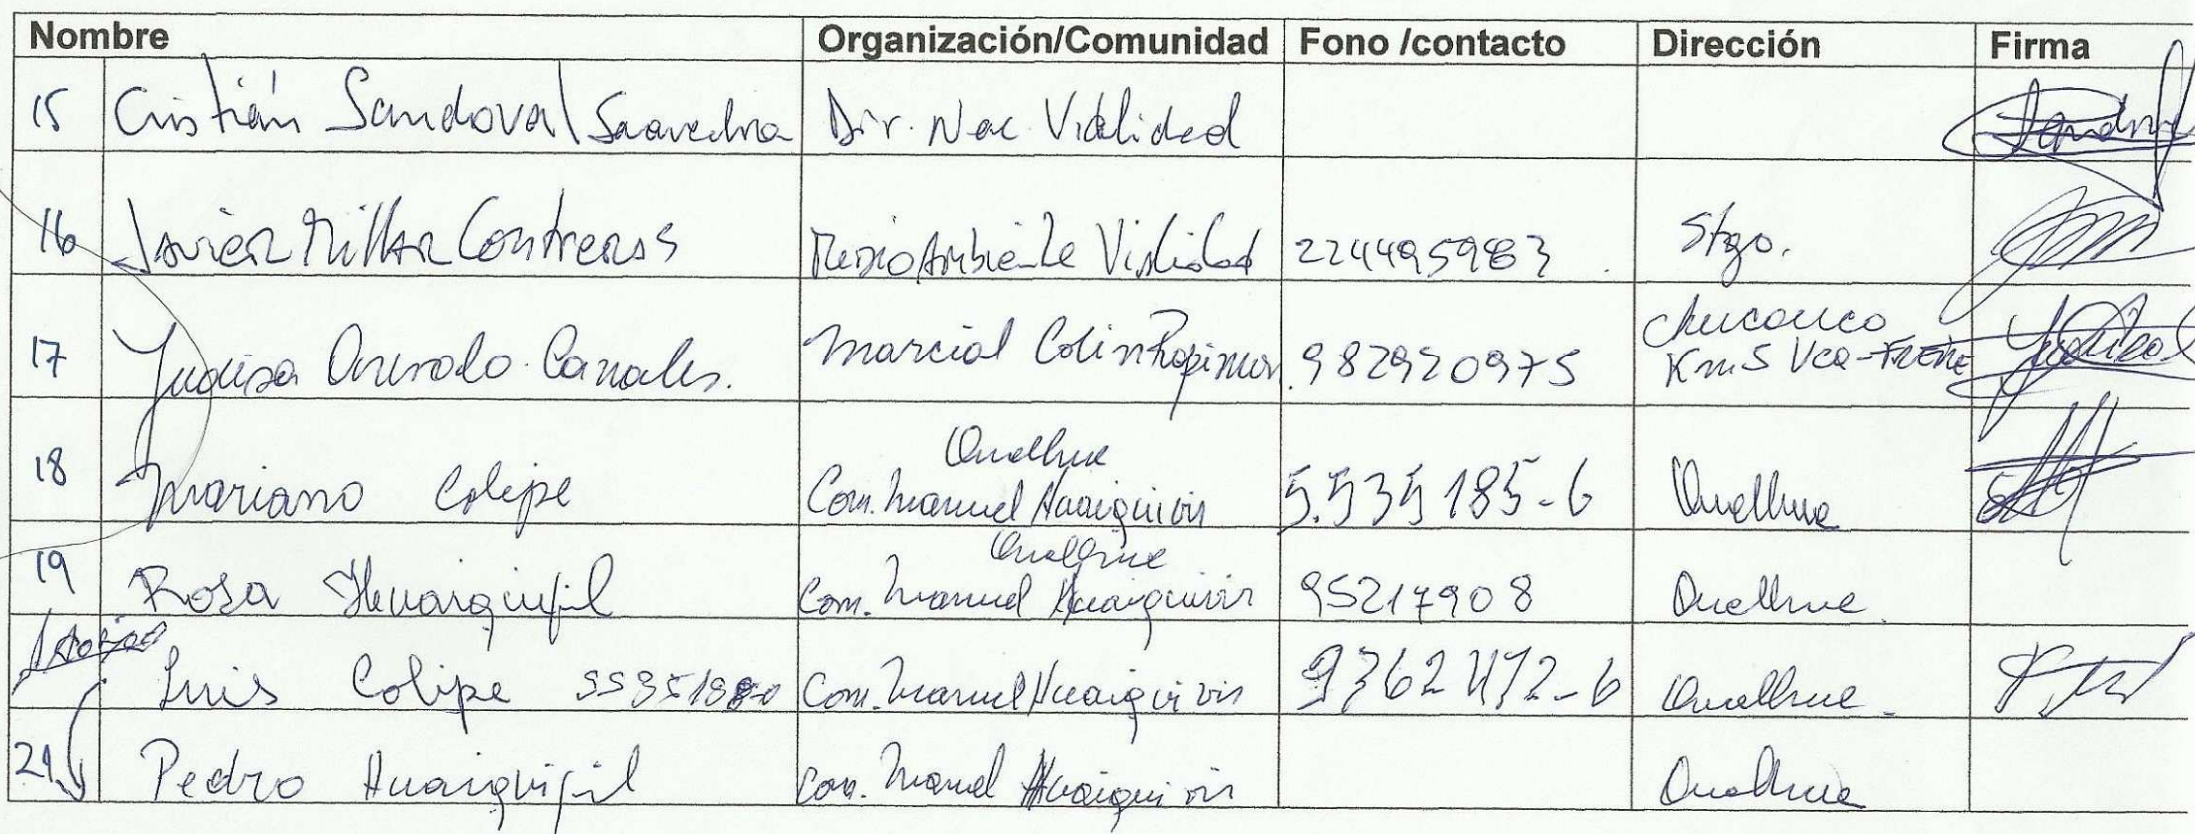 Nombre Organización/Comunidad Fono /contacto Dirección Firma
15 Cristián Sandoval Saavedra Dir. Nac. Vialidad
16 Javier Millar Contreras Medio Ambiente Vialidad 2244959 Stgo.
17 Canales. Marcial Colin 982920975 Chucauco
Km 5 Vca-Freire
Quelhue
18 Mariano Colipe Com. Manuel Huaiquivir 5.535185-6 Quelhue
Quelhue
19 Rosa Huaiquifil Com. Manuel Huaiquivir 95217908 Quelhue
Luis Colipe Com. Manuel Huaiquivir 9362472-6 Quelhue
21 Pedro Huaiquifil Com. Manuel Huaiquivir Quelhue